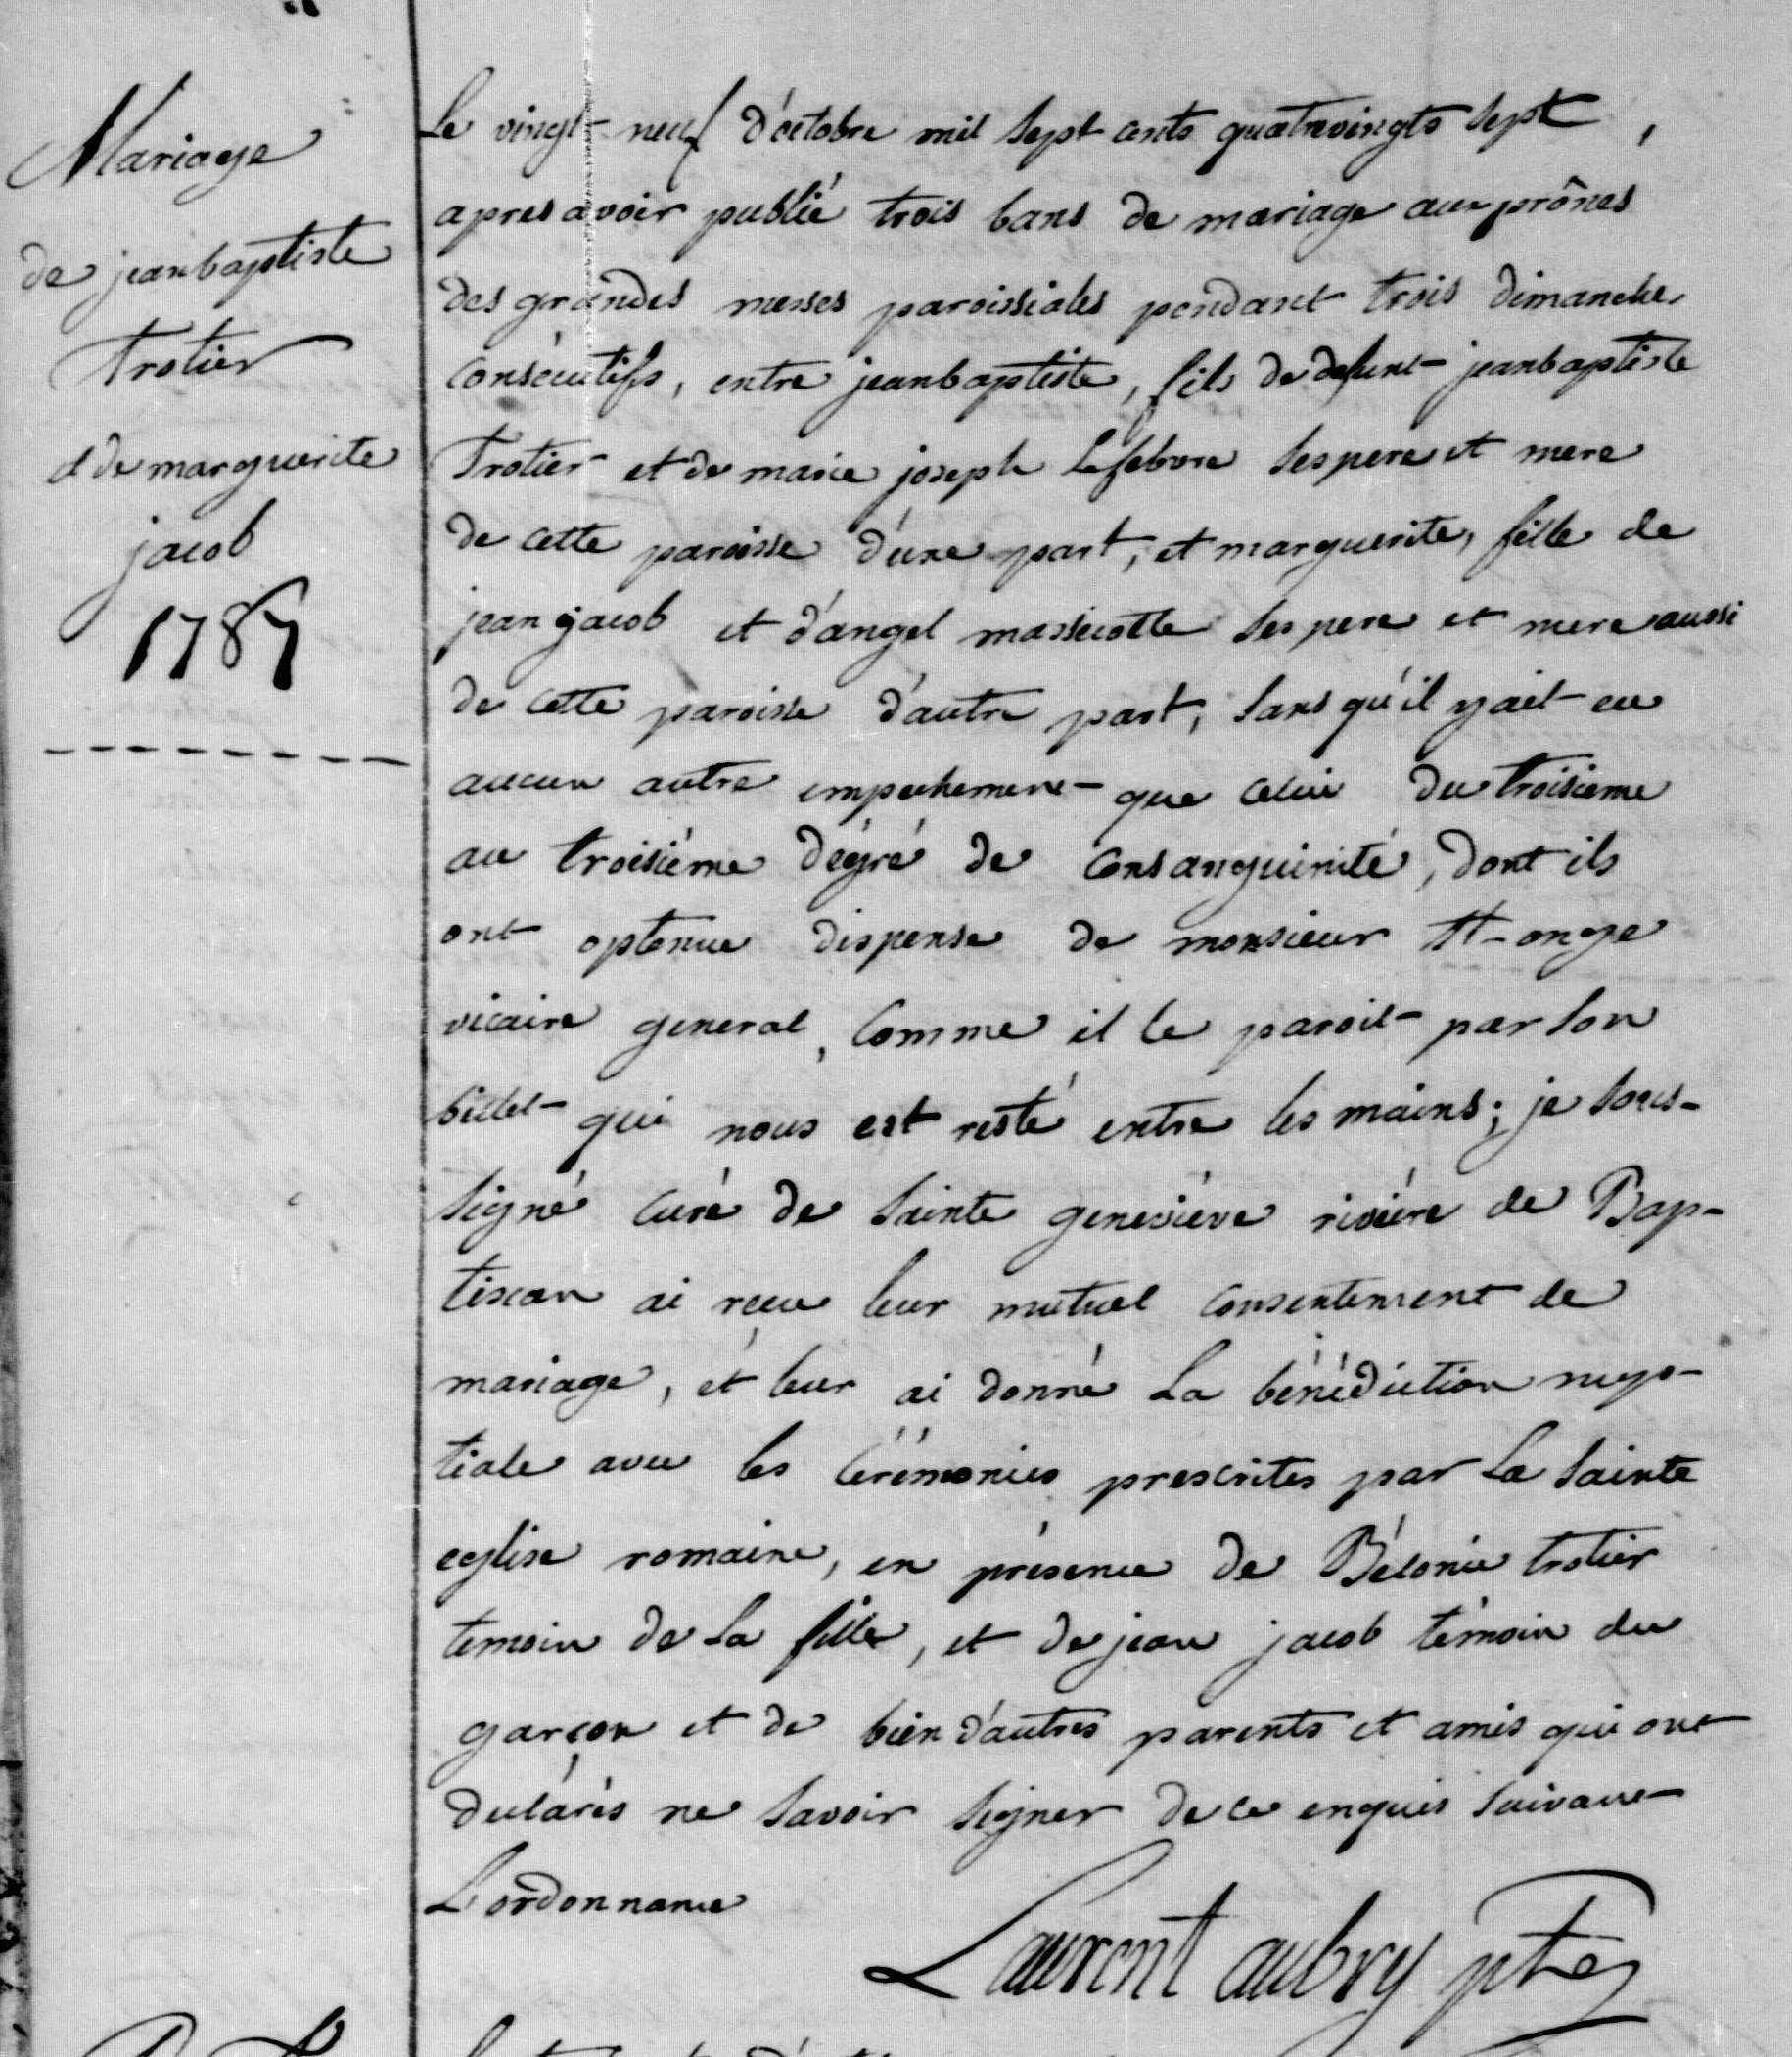 Mariage
de jeanbaptiste
Trotier
et de marguerite
jacob
1787
Le vingt-neuf d'octobre mil sept cents quatrevingts sept,
apres avoir publié trois bans de mariage aux prônes
des grandes messes paroissiales pendant trois dimanches
consécutifs, entre jeanbaptiste, fils de defunt jeanbaptiste
Trotier et de marie joseph Lefebvre ses pere et mere
de cette paroisse d'une part, et marguerite, fille de
jean jacob et d'angel massicotte ses pere et mere aussi
de cette paroisse d'autre part, sans qu'il y ait eu
aucun autre empechement que celui du troisieme
au troisième dégré de consanguinité, dont ils
ont optenue dispense de monsieur St-onge
vicaire general, comme il le paroit par son
billet qui nous est resté entre les mains; je sous-
signé curé de Sainte geneviève rivière de Bap-
tiscan ai reçu leur mutuel consentement de
mariage, et leur ai donné La bénédiction nup-
tiale avec les Cérémonies prescrites par La Sainte
eglise romaine, en présence de Bélonie trotier
temoin de La fille, et de jean jacob témoin du
garçon et de bien d'autres parents et amis qui ont
déclarés ne savoir signer de ce enquis suivant
L'ordonnance
Laurent aubry ptre